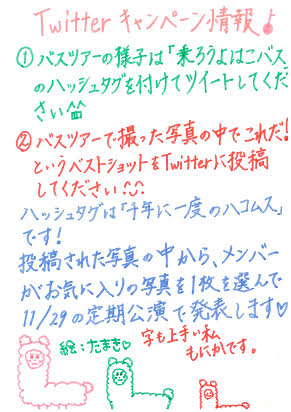 Twitter キャンペーン情報♪
① バスツアーの様子は「乗ろうよはこバス」
のハッシュタグを付けてツイートしてくだ
さい^^
② バスツアーで撮った写真の中でこれだ!
というベストショットをTwitterに投稿
してください^^
ハッシュタグは「千年に一度のハコムス」
です!
投稿された写真の中から、メンバー
がお気に入りの写真を1枚を選んで
11/29の定期公演で発表します♡
絵:たまき♡
字も上手い私
もにかです。